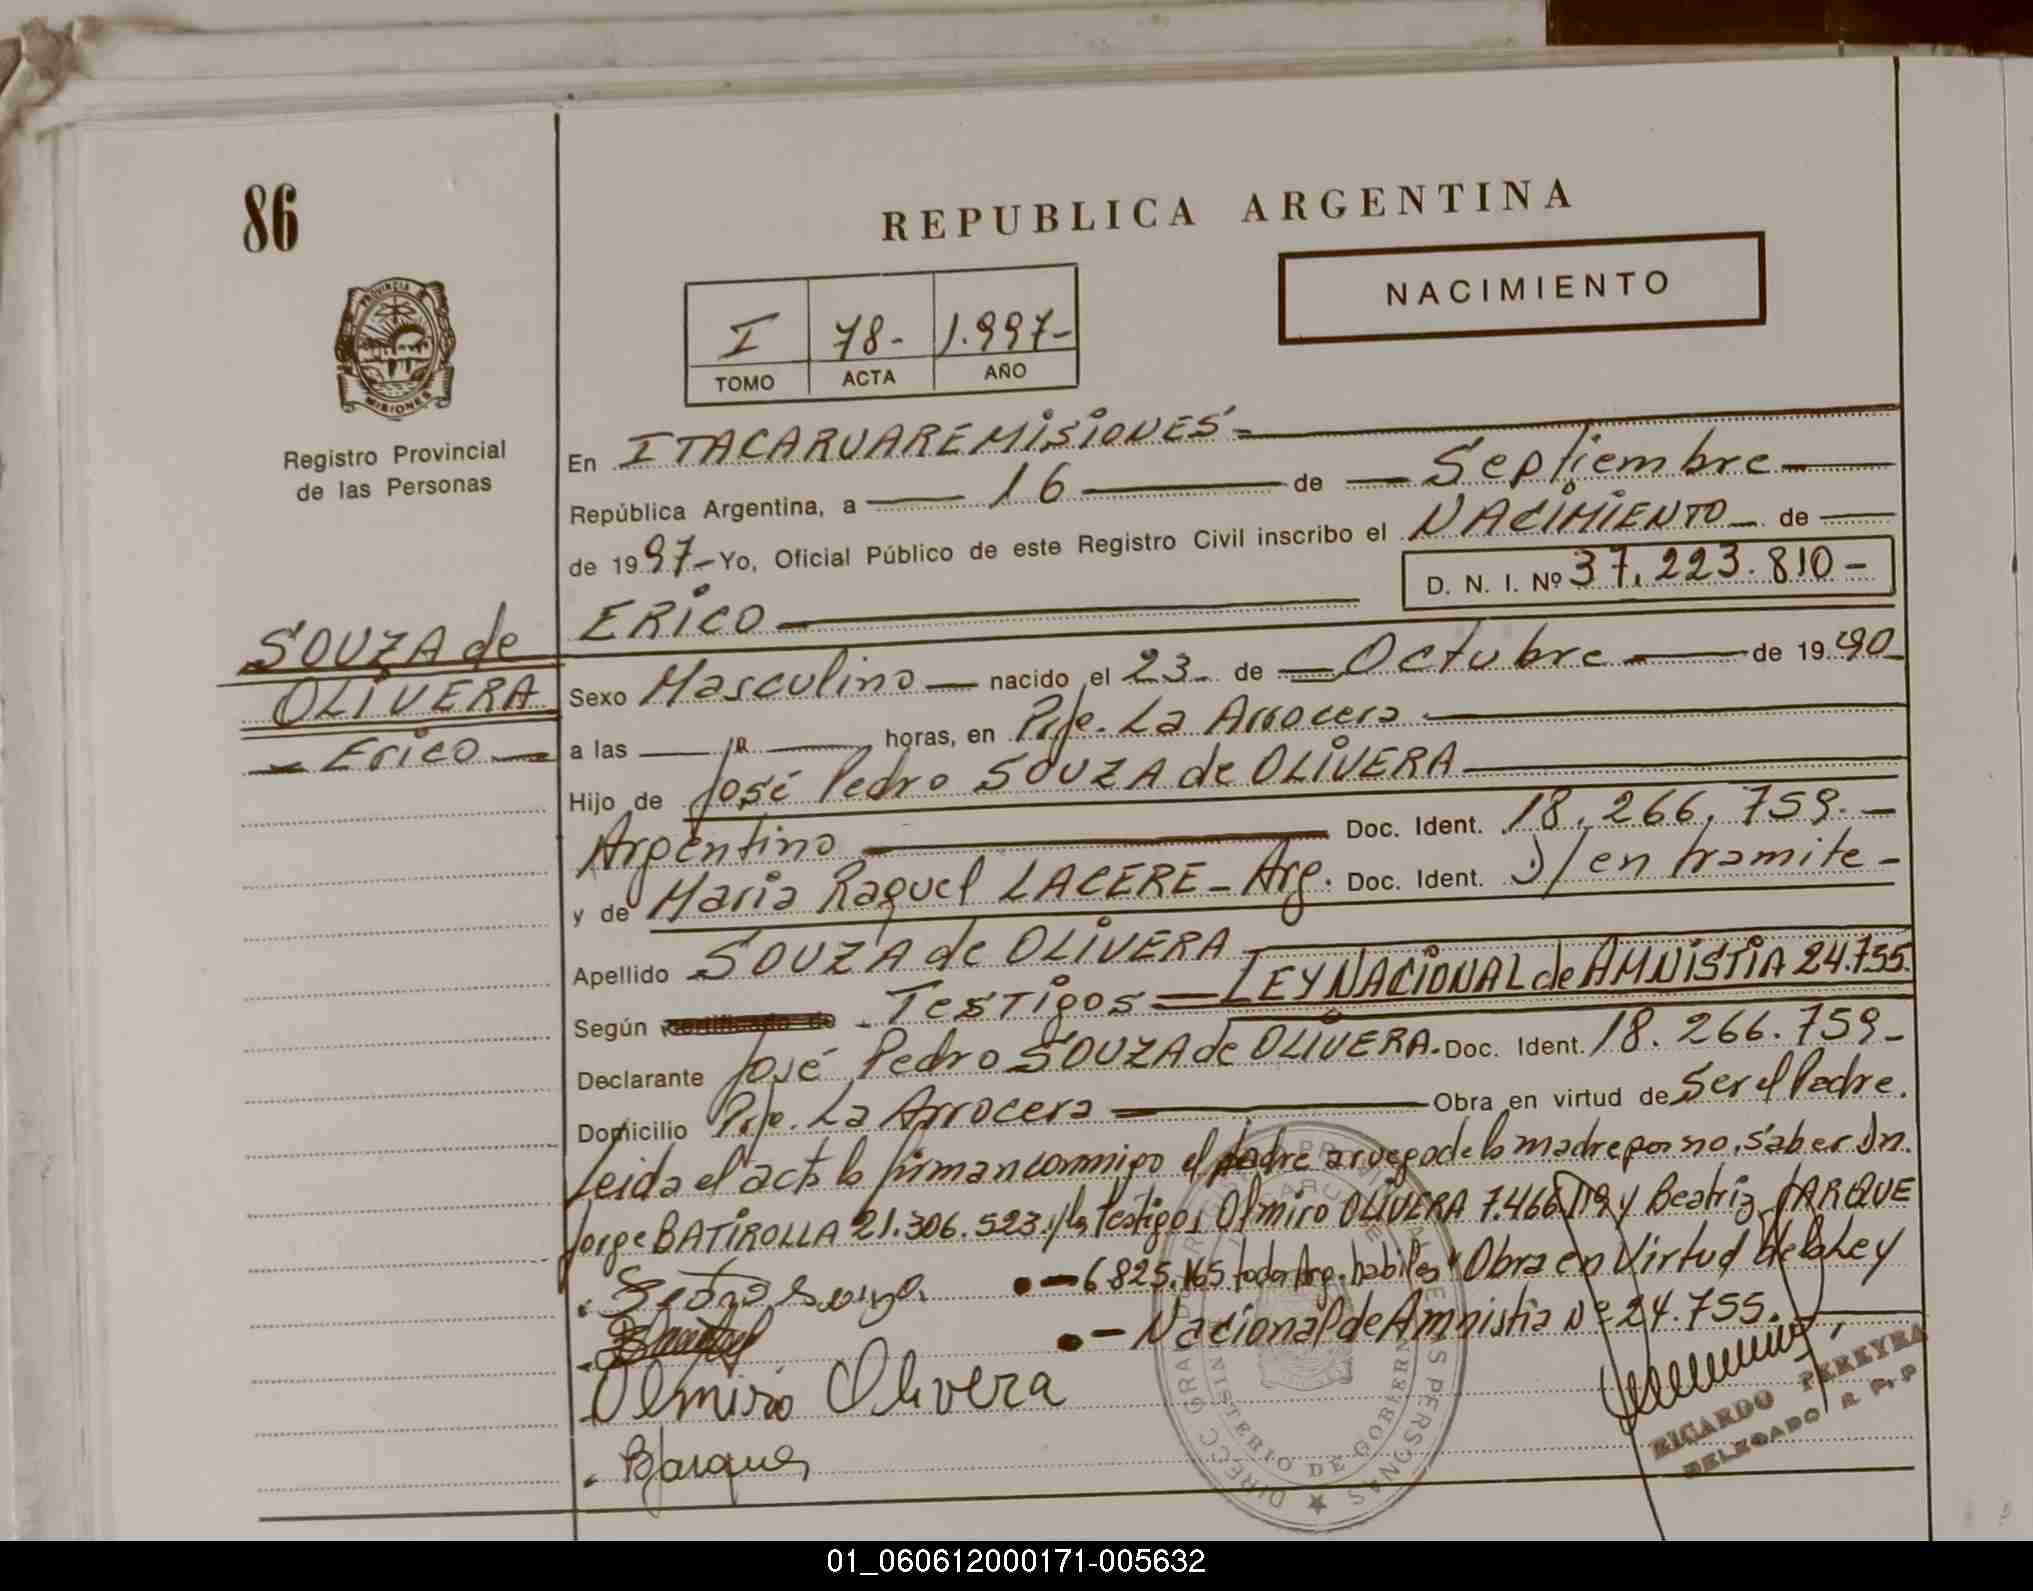 86
REPUBLICA ARGENTINA
NACIMIENTO
I 78- 1.997-
TOMO ACTA AÑO
PROVINCIA DE
MISIONES
Registro Provincial
de las Personas
SOUZA de
OLIVERA
Erico
En ITACARUARE MISIONES
República Argentina, a 16 de Septiembre
de 1997- Yo, Oficial Público de este Registro Civil inscribo el NACIMIENTO de
D. N. I. Nº 37.223.810-
ERICO
Sexo Masculino nacido el 23 de Octubre de 1990
a las horas, en Pje. La Arrocera
Hijo de José Pedro SOUZA de OLIVERA
Argentino Doc. Ident. 18.266.759.-
y de Maria Raquel LACERE - Arg. Doc. Ident. en tramite -
Apellido SOUZA de OLIVERA
Según certificado de Testigos = LEY NACIONAL de AMNISTIA 24.755.
Declarante José Pedro SOUZA de OLIVERA. Doc. Ident. 18.266.759-
Domicilio Pje. La Arrocera Obra en virtud de Ser el Padre.
Leida el acta la firman conmigo el padre a ruego de la madre por no saber Dn.
Jorge BATIROLLA 21.306.523 y los testigos Olmiro OLIVERA y Beatriz JARQUE
6825.165 todos Arg. habiles "Obra en Virtud de la Ley
Nacional de Amnistia Nº 24.755.
Olmiro Olivera
DIRECC GRAL DEL REGISTRO PROVINCIAL DE LAS PERSONAS
MINISTERIO DE GOBIERNO
RICARDO PEREYRA
DELEGADO R. P. P
01_060612000171-005632